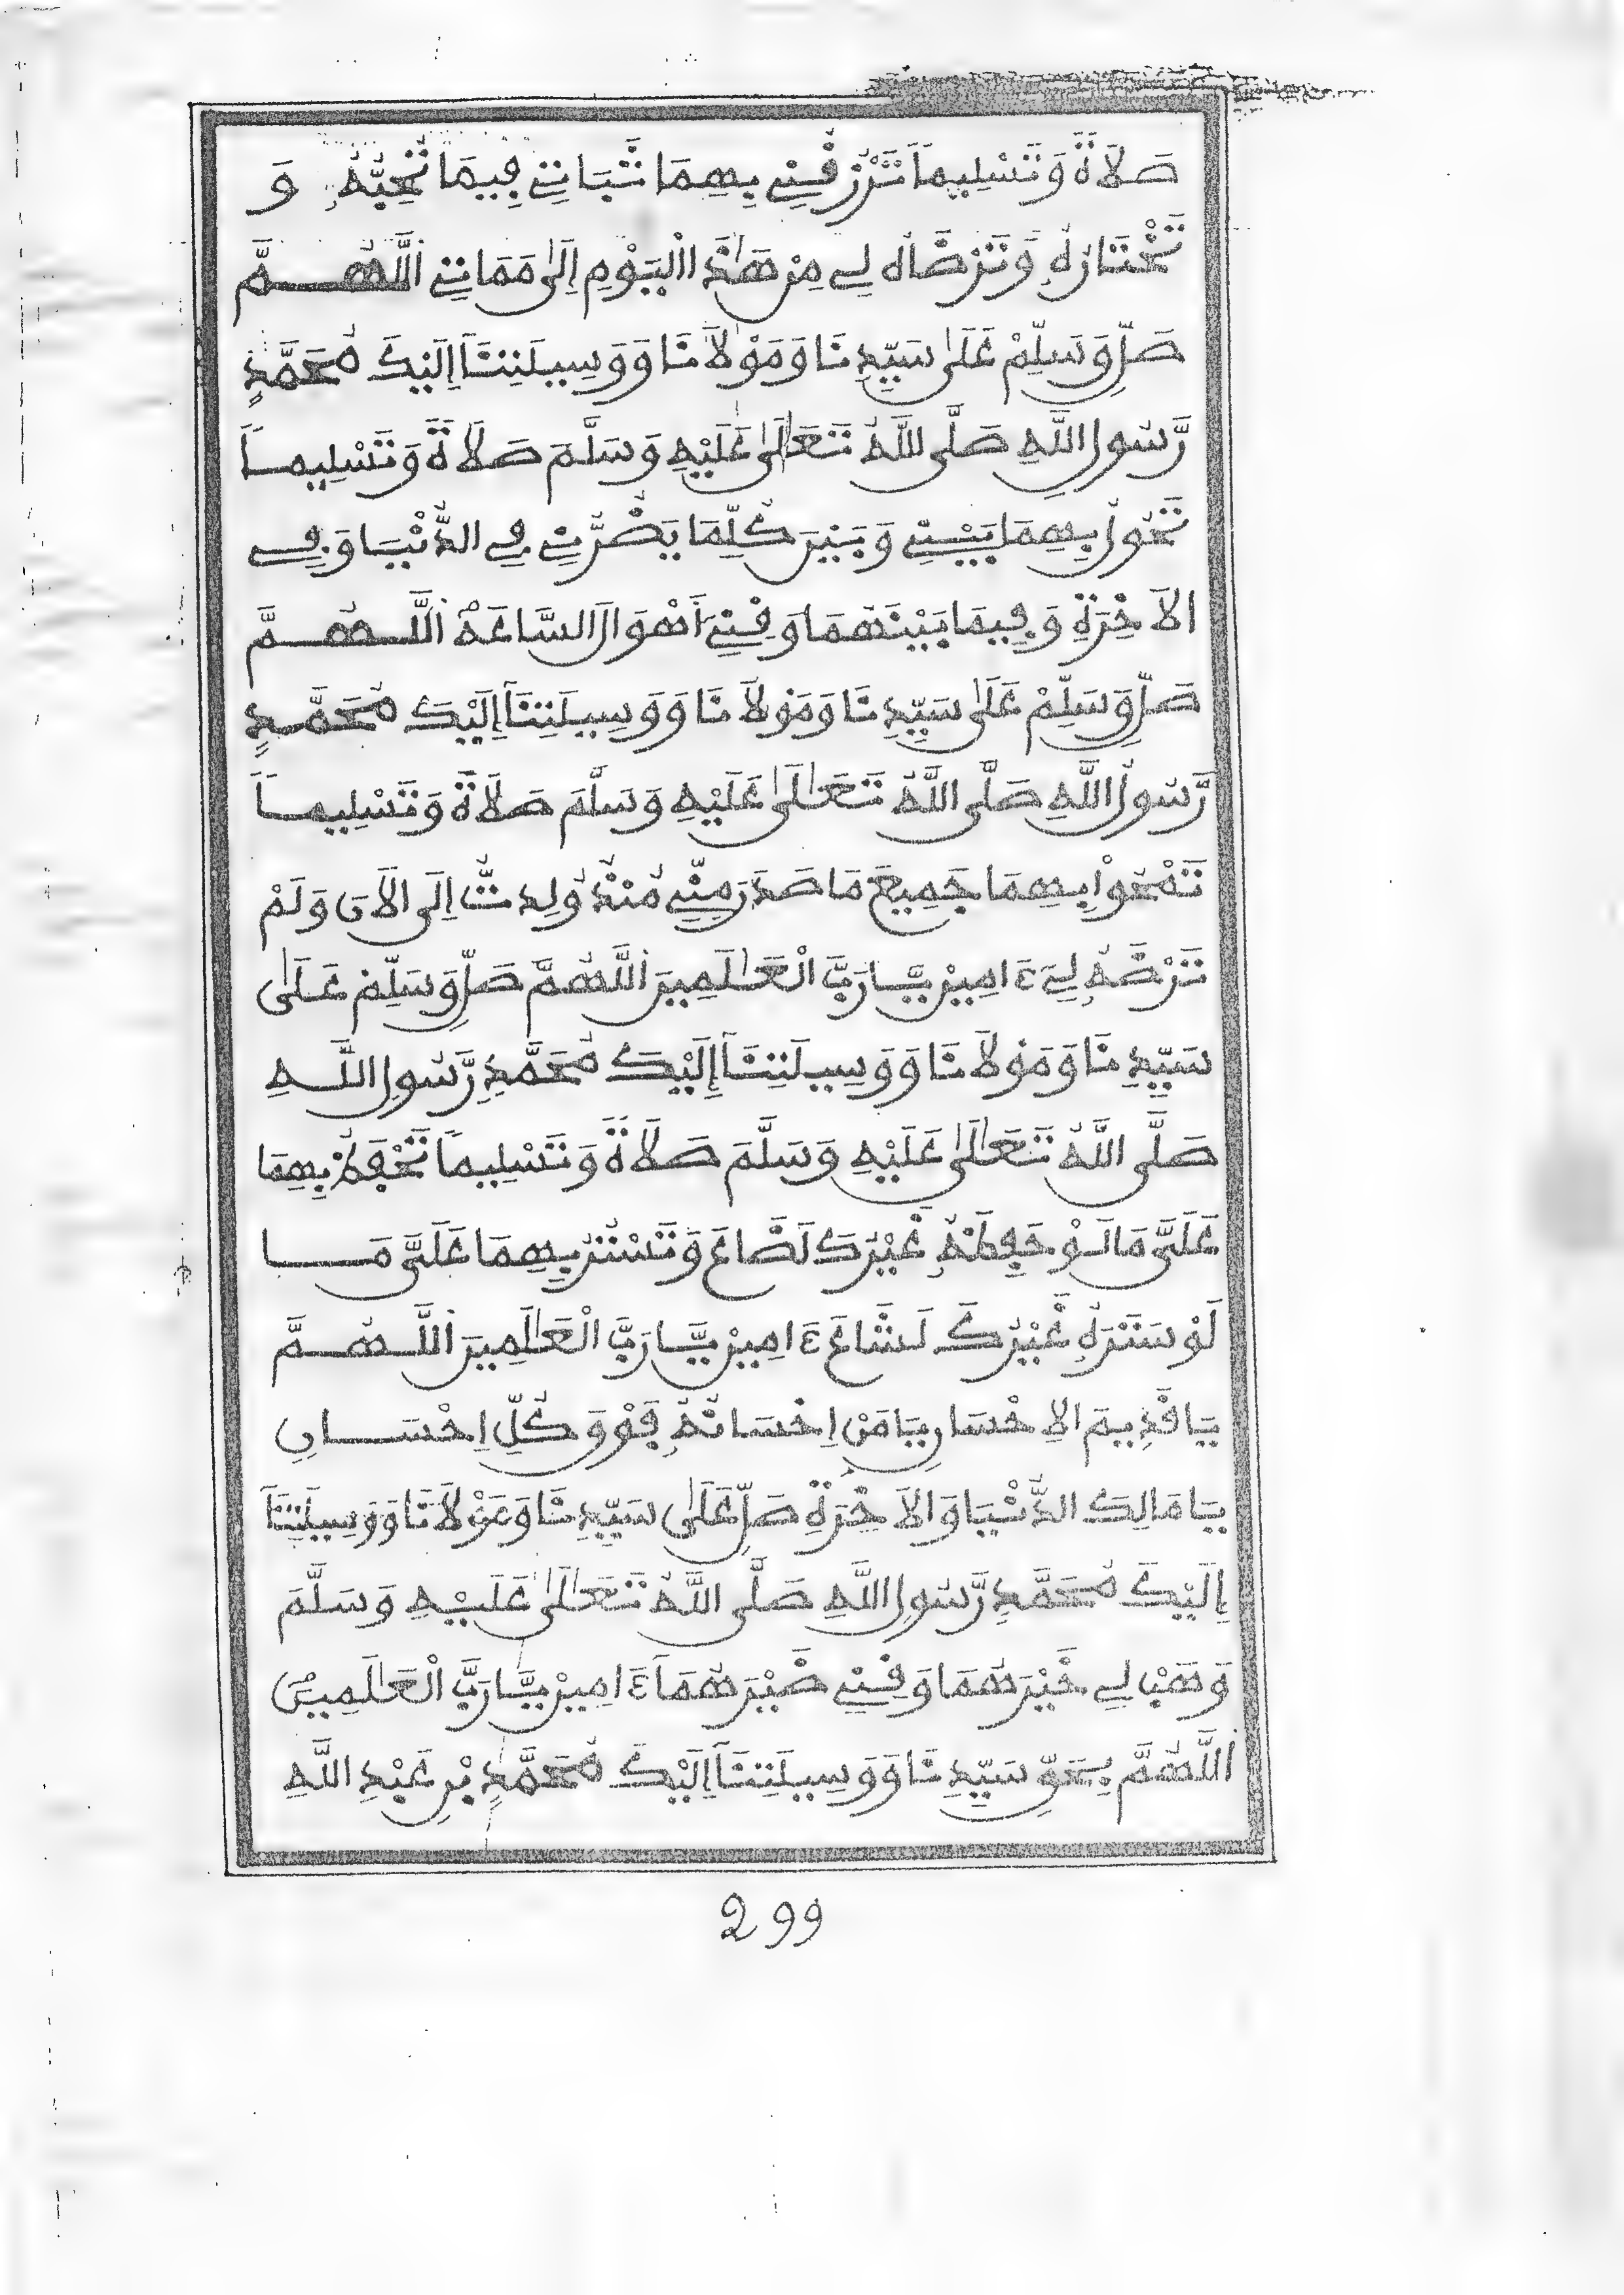 صَلَاةً وَتَسْلِيمًا تَرْزُقُنِي بِهِمَا ثَبَاتِي فِيمَا تُحِبُّهُ وَ
تَخْتَارُهُ وَتَرْضَاهُ لِي مِنْ هَٰذَا الْيَوْمِ إِلَىٰ مَمَاتِي اَللَّهُمَّ
صَلِّ وَسَلِّمْ عَلَىٰ سَيِّدِنَا وَمَوْلَانَا وَوَسِيلَتِنَا إِلَيْكَ مُحَمَّدٍ
رَّسُولِ اللَّهِ صَلَّى اللَّهُ تَعَالَىٰ عَلَيْهِ وَسَلَّمَ صَلَاةً وَتَسْلِيمًا
تَحُولُ بِهِمَا بَيْنِي وَبَيْنَ كُلِّمَا يَضُرُّنِي فِي الدُّنْيَا وَفِي
الْآخِرَةِ وَفِيمَا بَيْنَهُمَا وَقِنِي أَهْوَالَ السَّاعَةِ اَللَّهُمَّ
صَلِّ وَسَلِّمْ عَلَىٰ سَيِّدِنَا وَمَوْلَانَا وَوَسِيلَتِنَا إِلَيْكَ مُحَمَّدٍ
رَّسُولِ اللَّهِ صَلَّى اللَّهُ تَعَالَىٰ عَلَيْهِ وَسَلَّمَ صَلَاةً وَتَسْلِيمًا
تَمْحُوا بِهِمَا جَمِيعَ مَا صَدَرَ مِنِّي مُنْذُ وُلِدتُّ إِلَى الْآنَ وَلَمْ
تَرْضَهُ لِي ءَامِينَ يَا رَبَّ الْعَالَمِينَ اَللَّهُمَّ صَلِّ وَسَلِّمْ عَلَىٰ
سَيِّدِنَا وَمَوْلَانَا وَوَسِيلَتِنَا إِلَيْكَ مُحَمَّدٍ رَّسُولِ اللَّهِ
صَلَّى اللَّهُ تَعَالَىٰ عَلَيْهِ وَسَلَّمَ صَلَاةً وَتَسْلِيمًا تَحْفَظُ بِهِمَا
عَلَيَّ مَا لَوْ حَفِظَهُ غَيْرُكَ لَضَاعَ وَتَسْتُرُ بِهِمَا عَلَيَّ مَا
لَوْ سَتَرَهُ غَيْرُكَ لَشَاعَ ءَامِينَ يَا رَبَّ الْعَالَمِينَ اَللَّهُمَّ
يَا قَدِيمَ الْإِحْسَانِ يَا مَنْ إِحْسَانُهُ فَوْقَ كُلِّ إِحْسَانٍ
يَا مَالِكَ الدُّنْيَا وَالْآخِرَةِ صَلِّ عَلَىٰ سَيِّدِنَا وَمَوْلَانَا وَوَسِيلَتِنَا
إِلَيْكَ مُحَمَّدٍ رَّسُولِ اللَّهِ صَلَّى اللَّهُ تَعَالَىٰ عَلَيْهِ وَسَلَّمَ
وَهَبْ لِي خَيْرَهُمَا وَقِنِي ضَيْرَهُمَا ءَامِينَ يَا رَبَّ الْعَالَمِينَ
اَللَّهُمَّ بِحَقِّ سَيِّدِنَا وَوَسِيلَتِنَا إِلَيْكَ مُحَمَّدٍ بْنِ عَبْدِ اللَّهِ
299